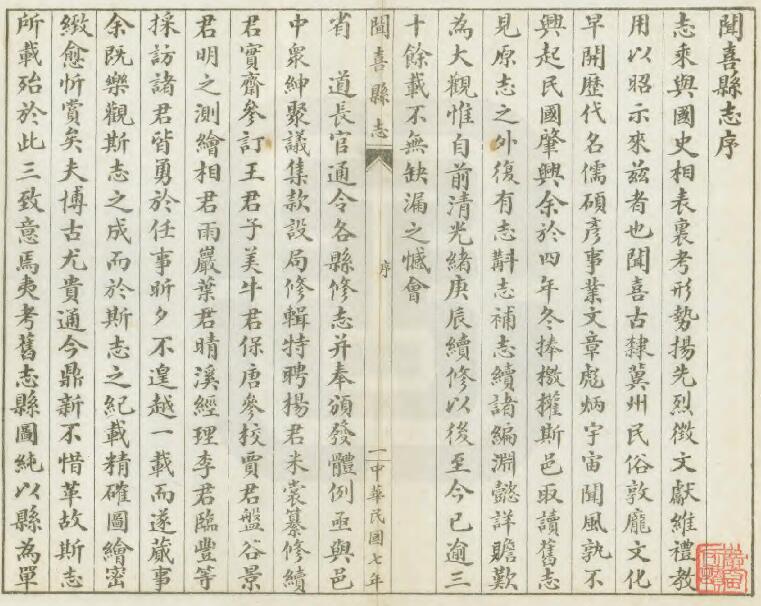 聞喜縣志序
志乘與國史相表裏考形勢揚先烈徵文獻維禮教
用以昭示來兹者也聞喜古隸冀州民俗敦龐文化
早開歷代名儒碩彥事業文章彪炳宇宙聞風孰不
興起民國肇興余於四年冬捧檄權斯邑取讀舊志
見原志之外復有志斠志補志續諸編淵懿詳贍歎
為大觀惟自前清光緒庚辰續修以後至今已逾三
十餘載不無缺漏之憾會
聞喜縣志
序
一
中華民國七年
省 道長官通令各縣修志并奉頒發體例亟與邑
中衆紳聚議集款設局修輯特聘楊君米裳纂修續
君實齋參訂王君子美牛君保唐參校賈君盤谷景
君明之測繪相君雨巖葉君晴溪經理李君臨豐等
採訪諸君皆勇於任事昕夕不遑越一載而遂蕆事
余既樂觀斯志之成而於斯志之紀載精確圖繪密
緻愈忻賞矣夫博古尤貴通今鼎新不惜革故斯志
所載殆於此三致意焉夷考舊志縣圖純以縣為單